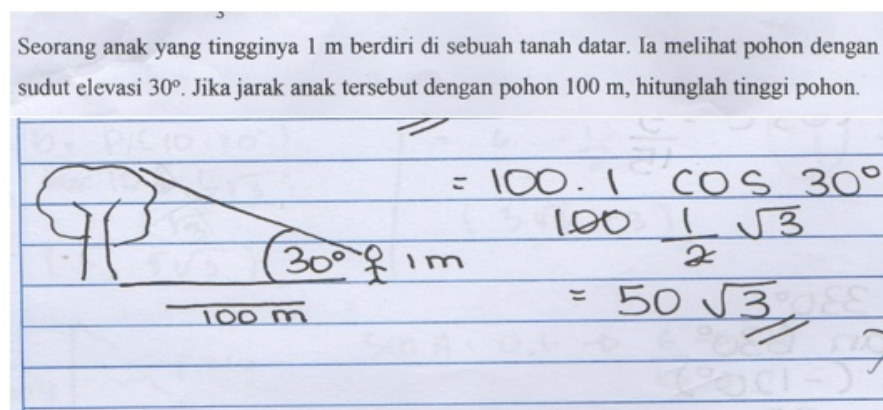 Seorang anak yang tingginya 1 m berdiri di sebuah tanah datar. Ia melihat pohon dengan
sudut elevasi 30°. Jika jarak anak tersebut dengan pohon 100 m, hitunglah tinggi pohon.
= 100 . 1 COS 30°
100 1/2 √3
30° 1 m
= 50 √3
100 m